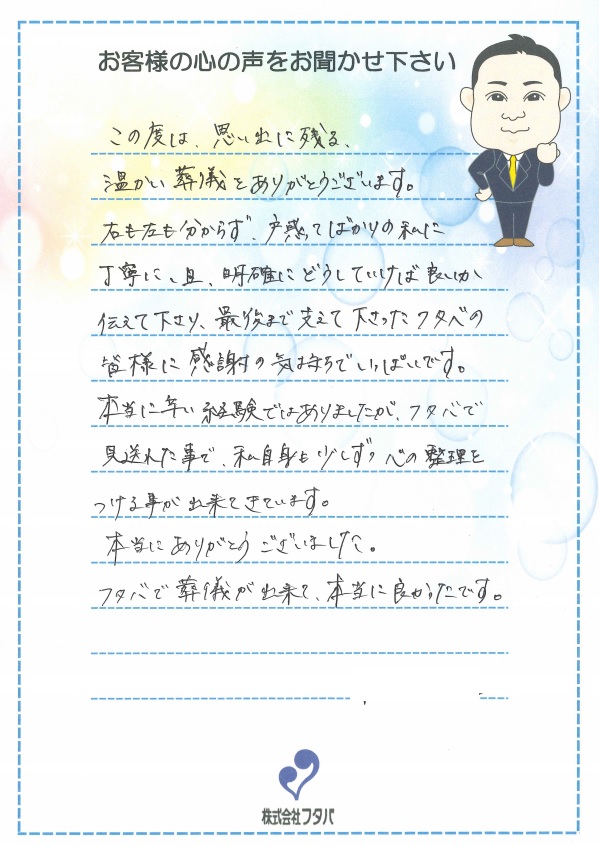 お客様の心の声をお聞かせ下さい
この度は、思い出に残る、
温かい葬儀をありがとうございます。
右も左も分からず、戸惑ってばかりの私に
丁寧に、且、明確にどうしていけば良いか
伝えて下さり、最後まで支えて下さったフタバの
皆様に感謝の気持ちでいっぱいです。
本当に辛い経験ではありましたが、フタバで
見送れた事で、私自身も少しずつ心の整理を
つける事が出来てきています。
本当にありがとうございました。
フタバで葬儀が出来て、本当に良かったです。
株式会社フタバ